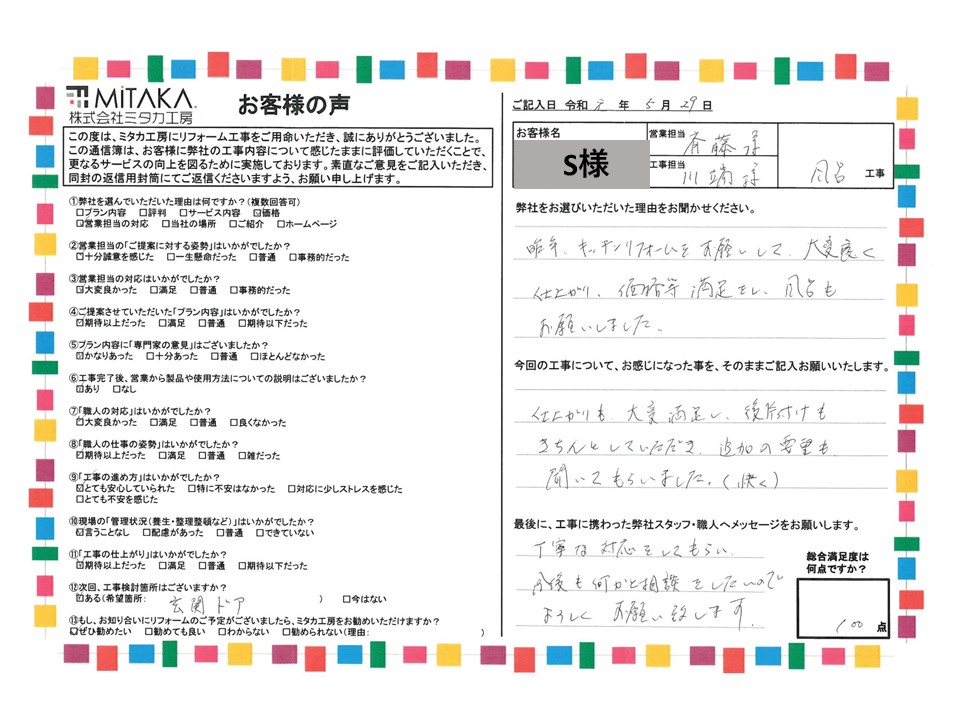 MiTAKA
株式会社ミタカ工房
お客様の声
この度は、ミタカ工房にリフォーム工事をご用命いただき、誠にありがとうございました。
この通信簿は、お客様に弊社の工事内容について感じたままに評価していただくことで、
更なるサービスの向上を図るために実施しております。素直なご意見をご記入いただき、
同封の返信用封筒にてご返信くださいますよう、お願い申し上げます。
①弊社を選んでいただいた理由は何ですか？(複数回答可)
□プラン内容 □評判 □サービス内容 ☑価格
☑営業担当の対応 □当社の場所 □ご紹介 □ホームページ
②営業担当の「ご提案に対する姿勢」はいかがでしたか？
☑十分誠意を感じた □一生懸命だった □普通 □事務的だった
③営業担当の対応はいかがでしたか？
☑大変良かった □満足 □普通 □事務的だった
④ご提案させていただいた「プラン内容」はいかがでしたか？
☑期待以上だった □満足 □普通 □期待以下だった
⑤プラン内容に「専門家の意見」はございましたか？
☑かなりあった □十分あった □普通 □ほとんどなかった
⑥工事完了後、営業から製品や使用方法についての説明はございましたか？
☑あり □なし
⑦「職人の対応」はいかがでしたか？
☑大変良かった □満足 □普通 □良くなかった
⑧「職人の仕事の姿勢」はいかがでしたか？
☑期待以上だった □満足 □普通 □雑だった
⑨「工事の進め方」はいかがでしたか？
☑とても安心していられた □特に不安はなかった □対応に少しストレスを感じた
□とても不安を感じた
⑩現場の「管理状況(養生・整理整頓など)」はいかがでしたか？
☑言うことなし □配慮があった □普通 □できていない
⑪「工事の仕上がり」はいかがでしたか？
☑期待以上だった □満足 □普通 □期待以下だった
⑫次回、工事検討箇所はございますか？
☑ある(希望箇所: 玄関ドア ) □今はない
⑬もし、お知り合いにリフォームのご予定がございましたら、ミタカ工房をお勧めいただけますか？
☑ぜひ勧めたい □勧めても良い □わからない □勧められない(理由: )
ご記入日 令和 元 年 5 月 29 日
お客様名
S様
営業担当
斉藤 様
工事担当
川端 様
風呂 工事
弊社をお選びいただいた理由をお聞かせください。
昨年、キッチンリフォームをお願いして、大変良く
仕上がり、価格等満足をし、風呂も
お願いしました。
今回の工事について、お感じになった事を、そのままご記入お願いいたします。
仕上がりも、大変満足し、後片付けも
きちんとしていただき、追加の要望も
聞いてもらいました。(快く)
最後に、工事に携わった弊社スタッフ・職人へメッセージをお願いします。
丁寧な対応をしてもらい、
今後も何かと相談をしたいので
よろしくお願い致します。
総合満足度は
何点ですか？
100 点